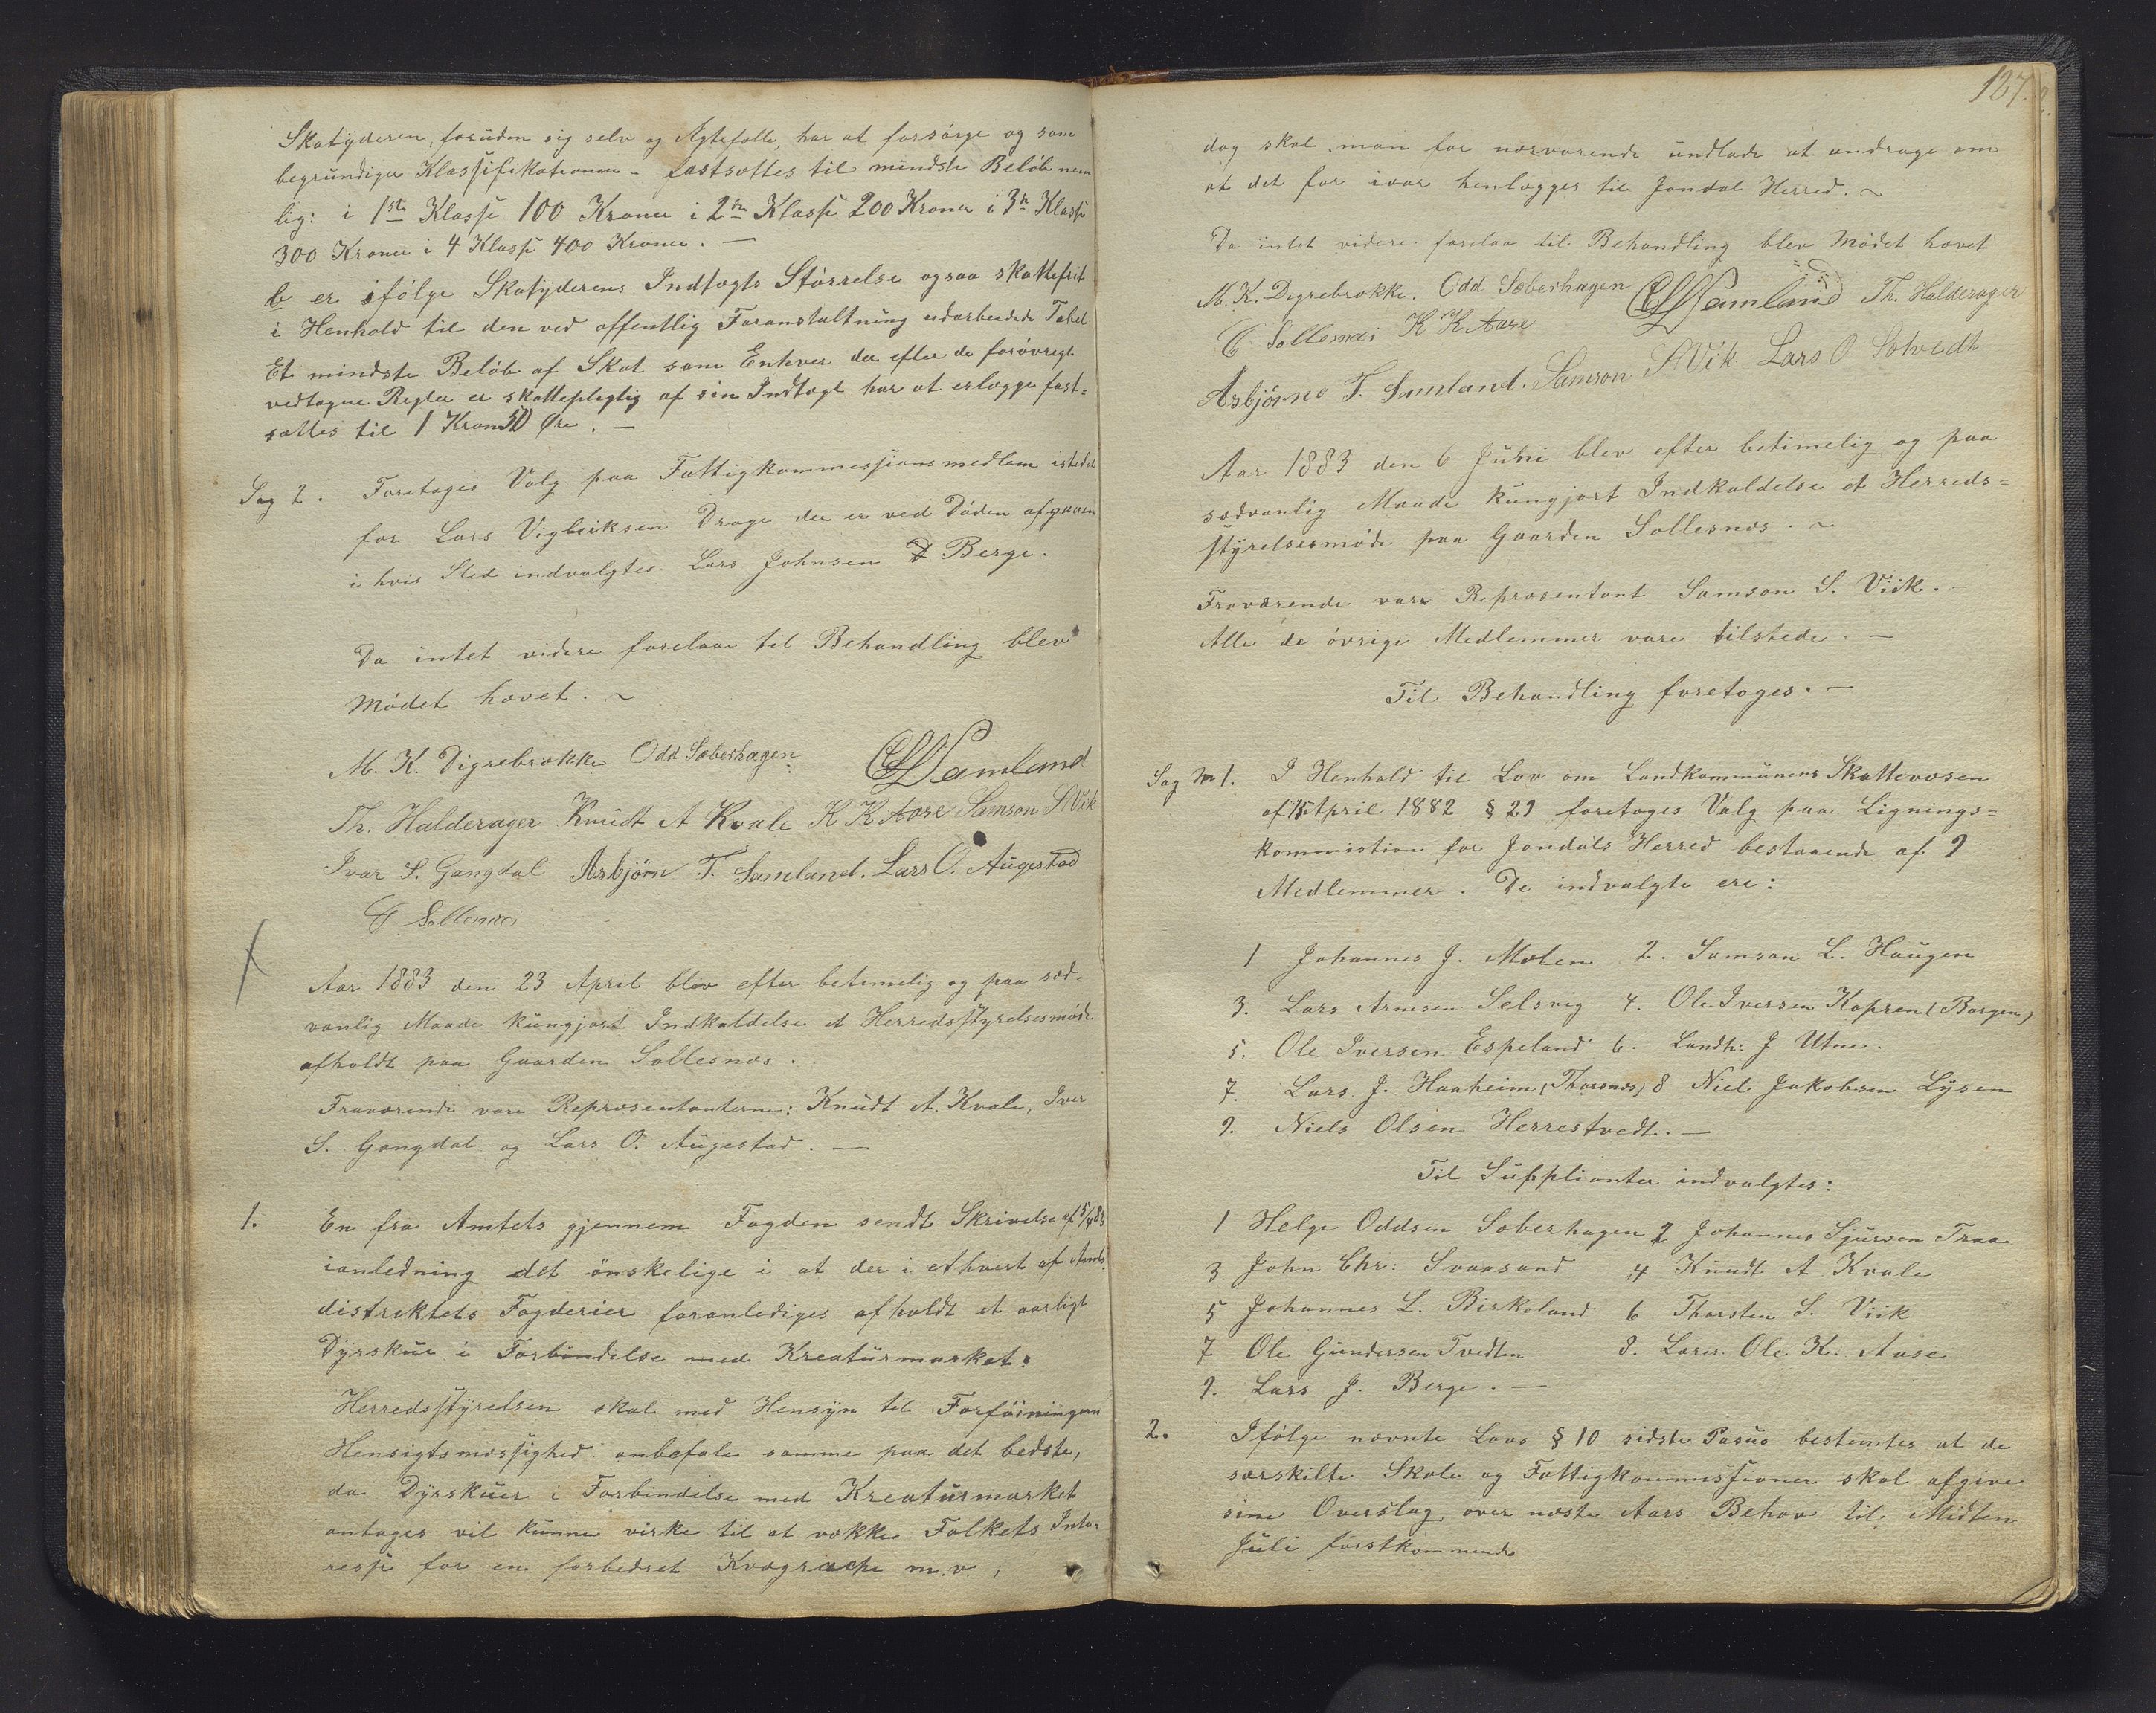 Skatÿderen, foruden sig selv og Ægtefælle, har at forsörge og som
begrundiger Klassifikationen - fastsættes til mindste Belöb nem
lig: i 1ste Klasse 100 Kroner i 2den Klasse 200 Kroner i 3die Klasse
300 Kroner i 4 Klasse 400 Kroner. —
b er ifölge Skatÿderens Indtægts Störrelse ogsaa skattefrit
i Henhold til den ved offentlig Foranstaltning udarbeidede Tabel
Et mindste Belöb af Skat som Enhver der efter de forövrigt
vedtagne Regler er skattepligtig af sin Indtægt har at erlægge fast=
sættes til 1 Krone 50 Øre. —
Sag 2. Foretoges Valg paa Fattigkommessionsmedlem istedet
for Lars Vigleiksen Drage der er ved Döden afgaaen
i hvis Sted indvalgtes Lars Johnsen Berge.
Da intet videre forelaa til Behandling blev
Mödet hævet. ~
M. K. Digrebrække Odd Sæberhagen Samland
Th. Halderager Knudt A Kvale K K Aase Samson S Vik
Ivar S. Gangdal Asbjörn T. Samland. Lars O. Augestad
Sollesnes
Aar 1883 den 23 April blev efter betimelig og paa sæd=
vanlig Maade kungjort Indkaldelse et Herredsstyrelsesmöde
afholdt paa Gaarden Sollesnæs.
Fraværende vare Repræsentanterne: Knudt A. Kvale, Iver
S. Gangdal og Lars O. Augestad. —
1. En fra Amtets gjennem Fogden sendt Skrivelse af 5/4 83
ianledning det önskelige i at der i ethvert af Amts
distriktets Fogderier foranlediges afholdt et aarligt
Dÿrskue i Forbindelse med Kreaturmarket.
Herredsstÿrelsen skal med Hensÿn til Forföiningens
Hensigtsmæssighed anbefale samme paa det bedste,
da Dÿrskuer i Forbindelse med Kreaturmarket
antages vil kunne virke til at vække Folkets Inte=
resse for en forbedret Kvægrace m.v.;
127.
dog skal man for nærværende undlade at andrage om
at det for iaar henlægges til Jondal Herred. ~
Da intet videre forelaa til Behandling blev Mödet hævet
M. K. Digrebrække. Odd Sæberhagen Samland Th. Halderager
Sollesnes K K Aase
Asbjörn T. Samland. Samson S Vik Lars O Solvedt
Aar 1883 den 6 Juni blev efter betimelig og paa
sædvanlig Maade kungjort Indkaldelse et Herreds=
stÿrelsesmöde paa Gaarden Sollesnæs. ~
Fraværende vare Repræsentant Samson S. Viik. —
Alle de övrige Medlemmer vare tilstede. —
Til Behandling foretoges. —
Sag No 1. I Henhold til Lov om Landkommunens Skattevæsen
af 15 April 1882 § 21 foretoges Valg paa Lignings=
kommistion for Jondals Herred bestaaende af 9
Medlemmer. De indvalgte ere:
1 Johannes J. Mælen 2. Samson L. Haugen
3. Lars Arnesen Selsvig 4. Ole Iversen Kapren (Borgen)
5. Ole Iversen Espeland 6. Landh: J Utne.
7. Lars J. Haaheim, (Thorsnæs) 8 Niel Jakobsen Lÿsen
9. Niels Olsen Herrestvedt. —
Til Supplianter indvalgtes:
1 Helge Oddsen Sæberhagen 2 Johannes Sjursen Traa
3 John Chr: Svaasand 4 Knudt A Kvale
5 Johannes L. Birkeland 6 Thorsten S. Viik
7 Ole Gundersen Tvedten 8. Lærer Ole K. Aase
9. Lars J. Berge. —
2. Ifölge nævnte Lovs § 10 sidste Pasus bestemtes at de
særskilte Skole og Fattigkommissioner skal afgive
sine Overslag over næste Aars Behov til Midten
Juli förstkommende